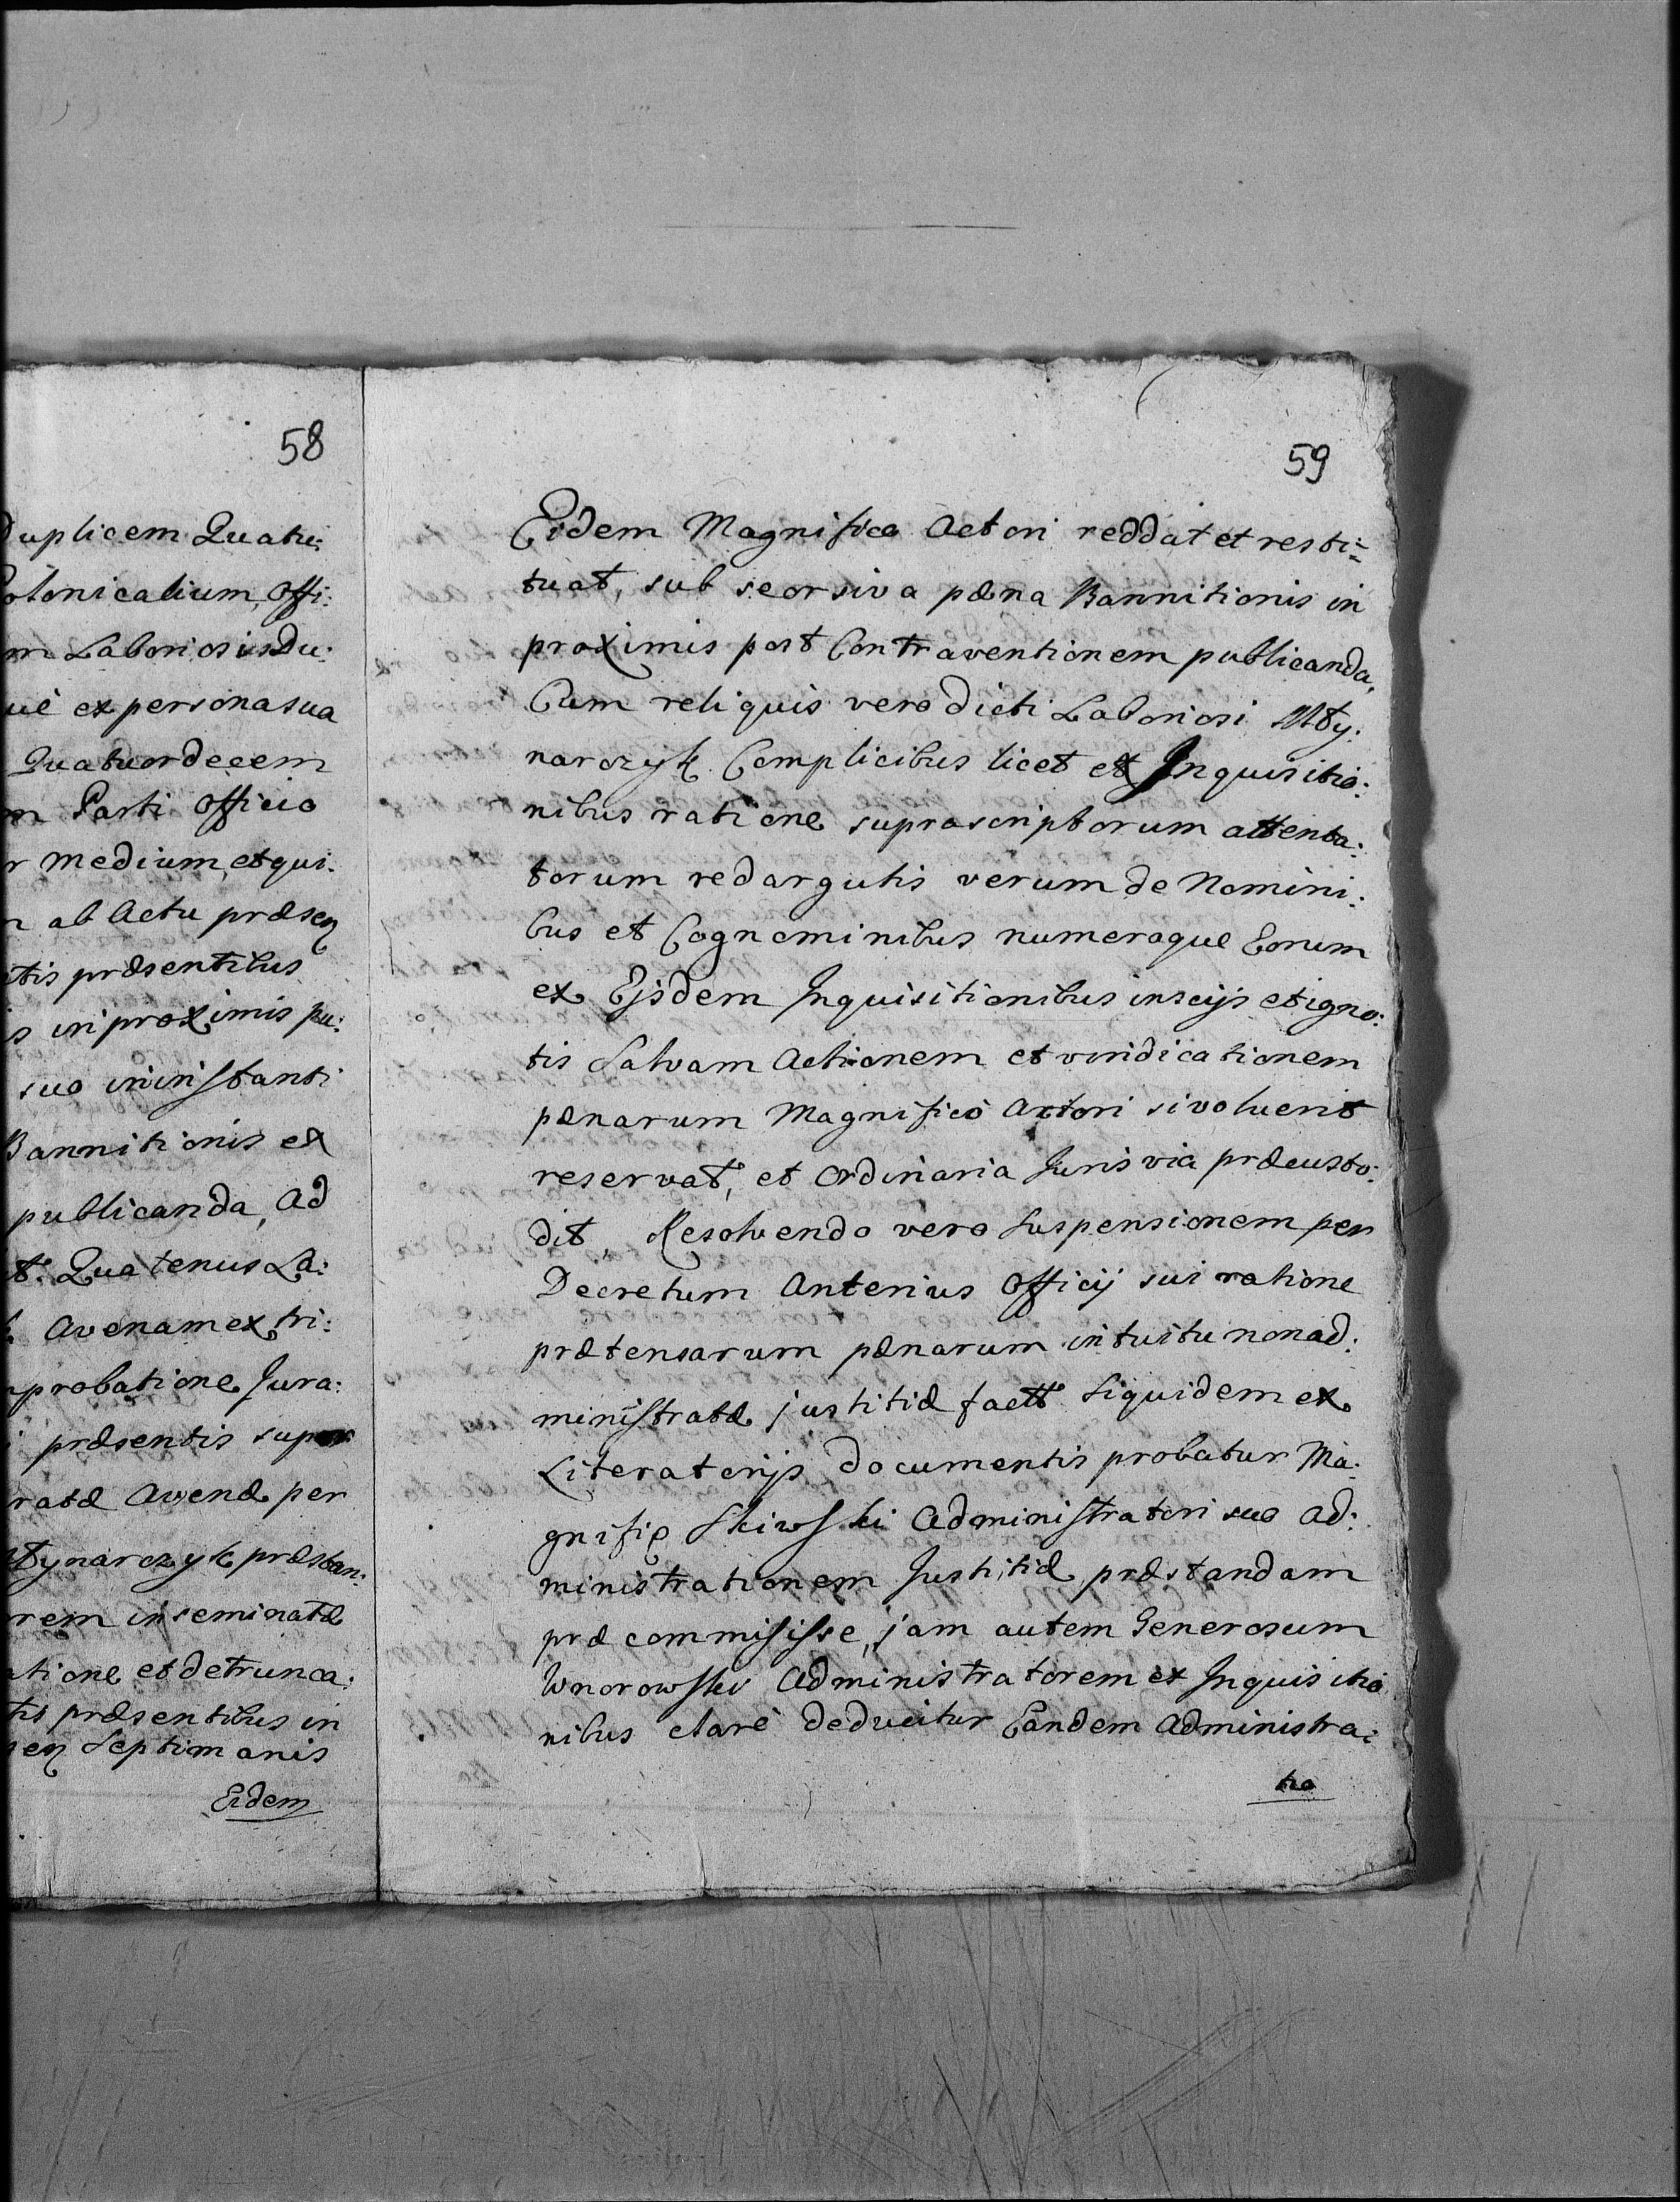 58
Duplicem Quatu:
otonicalium, Offi:
m Laboriosus Du:
ué ex persona sua
Quatuordecem
m Parti Officio
r medium, et qui:
n ab Actu præsen
tis præsentibus
s in proximis pu:
suo in instanti
Bannitionis ex
publicanda, ad
t. Quatenus La:
Avenam ex tri:
probatione Jura:
præsentis super
ratæ Avenæ per
tynarczyk præstan:
rem inseminatæ
atione et detrunca:
tis præsentibus in
sen Septimanis
Eidem
59
Eidem Magnifico Actori reddat et resti:
tuat, sub seorsiva pæna Bannitionis in
proximis post Contraventionem publicanda,
Cum reliquis vero dicti Laboriosi Mty:
narczyk Complicibus licet ex Inquisitio:
nibus ratione suprascriptorum attenta:
torum redargutis verum de Nomini:
bus et Cognominibus numeroque Eorum
ex Ejsdem Inquisitionibus inscijs et igno:
tis Salvam Actionem et vindicationem
pænarum Magnifico Actori si voluerit
reservat, et Ordinaria Juris via præcusto:
dit, Resolvendo vero Suspensionem per
Decretum Anterius Officij sui ratione
prætensarum pænarum intuitu non ad:
ministratæ justitiæ factt Siquidem ex
Literatorijs documentis probatur Ma:
gnific Skiwski Administratori suo ad:
ministrationem Justitiæ præstandam
præ commisisse, jam autem Generosum
Wnorowski Administratorem ex Inquisitio
nibus claré deducitur Eandem Administra:
tio